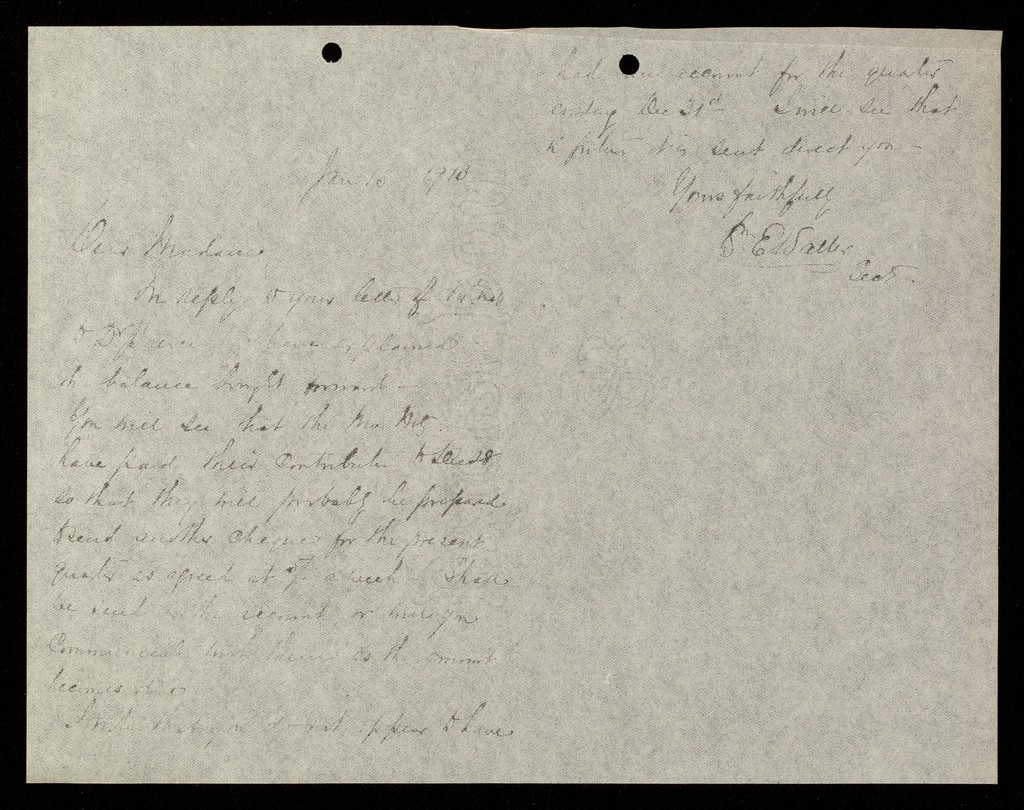 Jan 10 1910
Dear Madam
In reply to your letter of
& Dr I have explained
the balance brought forward —
You will see that the
have paid their Contribution to
so that they will probably be prepared
to send another cheque for the present
quarter as agreed at 5/- a week — Shall
be send the account or will you
Communicate with them as the amount
becomes due
I note that you do not appear to have
had account for the quarter
ending Dec 31st I will see that
in future it is sent direct you —
Yours faithfully
E Waller
Sect.